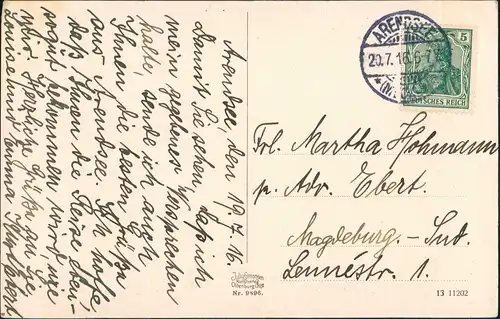 Arendsee, den 19.7.16.
Damit Sie sehen, daß ich
mein gegebenes Versprechen
halte, sende ich auch
Ihnen die besten Grüße
aus Arendsee. Ich hoffe,
daß Ihnen die Reise eben-
sogut bekommen wird, wie
mir. Herzliche Grüße an die
Luise und Emma
ARENDSEE
20.7.16.
DEUTSCHES REICH
5
Frl. Martha Hohmann
p. Adr. Ebert.
Magdeburg.-Sud.
Lennéstr. 1.
Nr. 9496.
13 11202